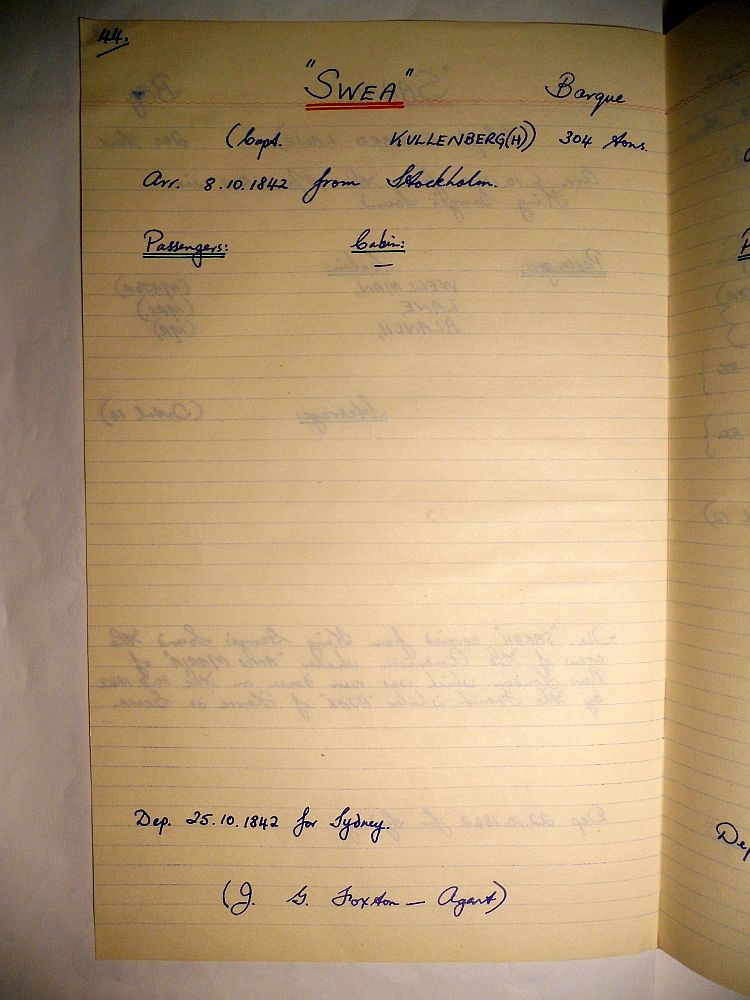 44.
"SWEA" Barque
(Capt. KULLENBERG(H)) 304 tons.
Arr. 8.10.1842 from Stockholm.
Passengers: Cabin:
—
Dep. 25.10.1842 for Sydney.
(J. G. Foxton — Agent)